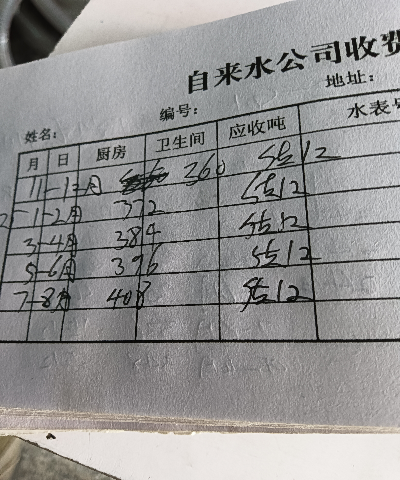 自来水公司收费
姓名: 编号: 地址:
月 日 厨房 卫生间 应收吨 水表号
11-12月 360 估12
1-2月 372 估12
3-4月 384 估12
5-6月 396 估12
7-8月 408 估12